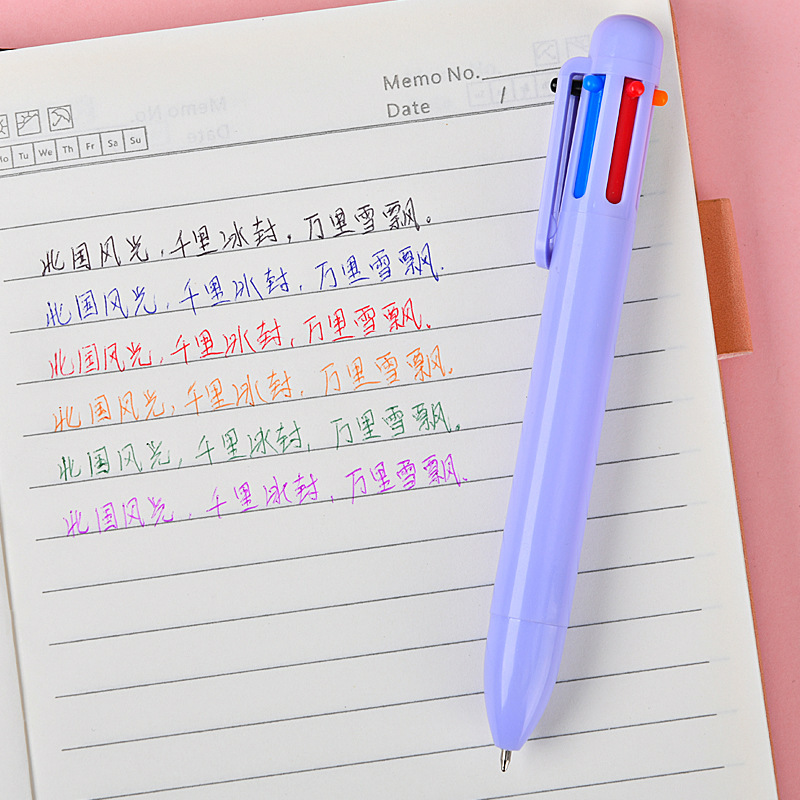 Memo No.
Date /
Mo Tu We Th Fr Sa Su
北国风光,千里冰封,万里雪飘。
北国风光,千里冰封,万里雪飘.
北国风光,千里冰封,万里雪飘.
北国风光,千里冰封,万里雪飘.
北国风光,千里冰封,万里雪飘。
北国风光,千里冰封,万里雪飘.